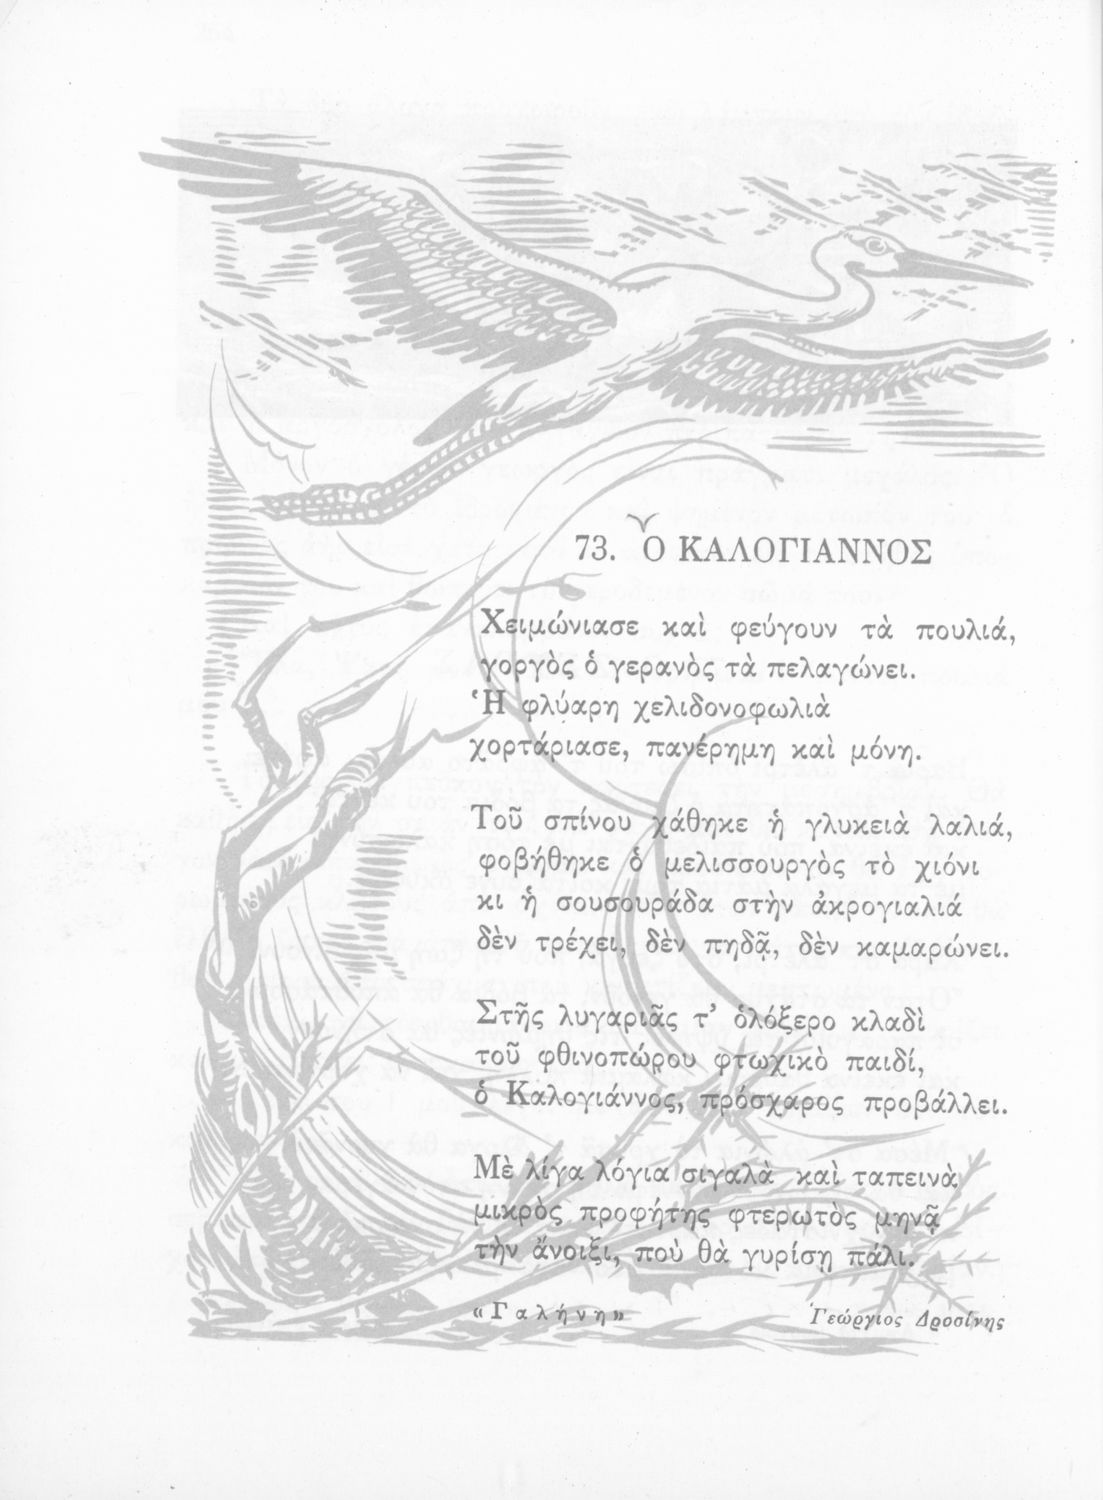 73. Ὁ ΚΑΛΟΓΙΑΝΝΟΣ
Χειμώνιασε καὶ φεύγουν τὰ πουλιά,
γοργὸς ὁ γερανὸς τὰ πελαγώνει.
Ἡ φλύαρη χελιδονοφωλιὰ
χορτάριασε, πανέρημη καὶ μόνη.
Τοῦ σπίνου χάθηκε ἡ γλυκειὰ λαλιά,
φοβήθηκε ὁ μελισσουργὸς τὸ χιόνι
κι ἡ σουσουράδα στὴν ἀκρογιαλιά
δὲν τρέχει, δὲν πηδᾷ, δὲν καμαρώνει.
Στῆς λυγαριᾶς τ’ ὁλόξερο κλαδὶ
τοῦ φθινοπώρου φτωχικὸ παιδί,
ὁ Καλογιάννος, πρόσχαρος προβάλλει.
Μὲ λίγα λόγια σιγαλὰ καὶ ταπεινὰ
μικρὸς προφήτης φτερωτὸς μηνᾷ
τὴν ἄνοιξι, ποὺ θὰ γυρίσῃ πάλι.
«Γαλήνη» Γεώργιος Δροσίνης